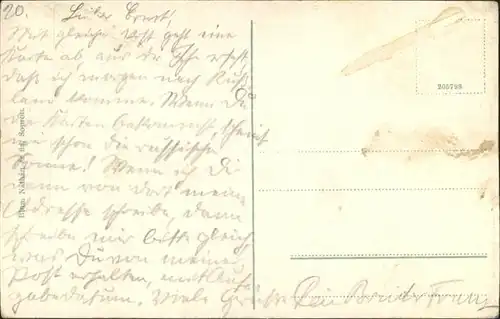 20. Lieber Ernst,
Mit gleicher Post geht eine
Karte ab, aus der Ihr erseht,
daß ich morgen nach Ruß-
land komme. Wenn Du
die Karten bekommst, scheint
mir schon die russische
Sonne! Wenn ich Dir
dann von dort meine
Adresse schreibe, dann
schreibe mir bitte gleich,
was Du von meiner
Post erhalten, mit Auf-
gabedatum. Viele Grüße Dein Bruder Franz
205793
Sopron.